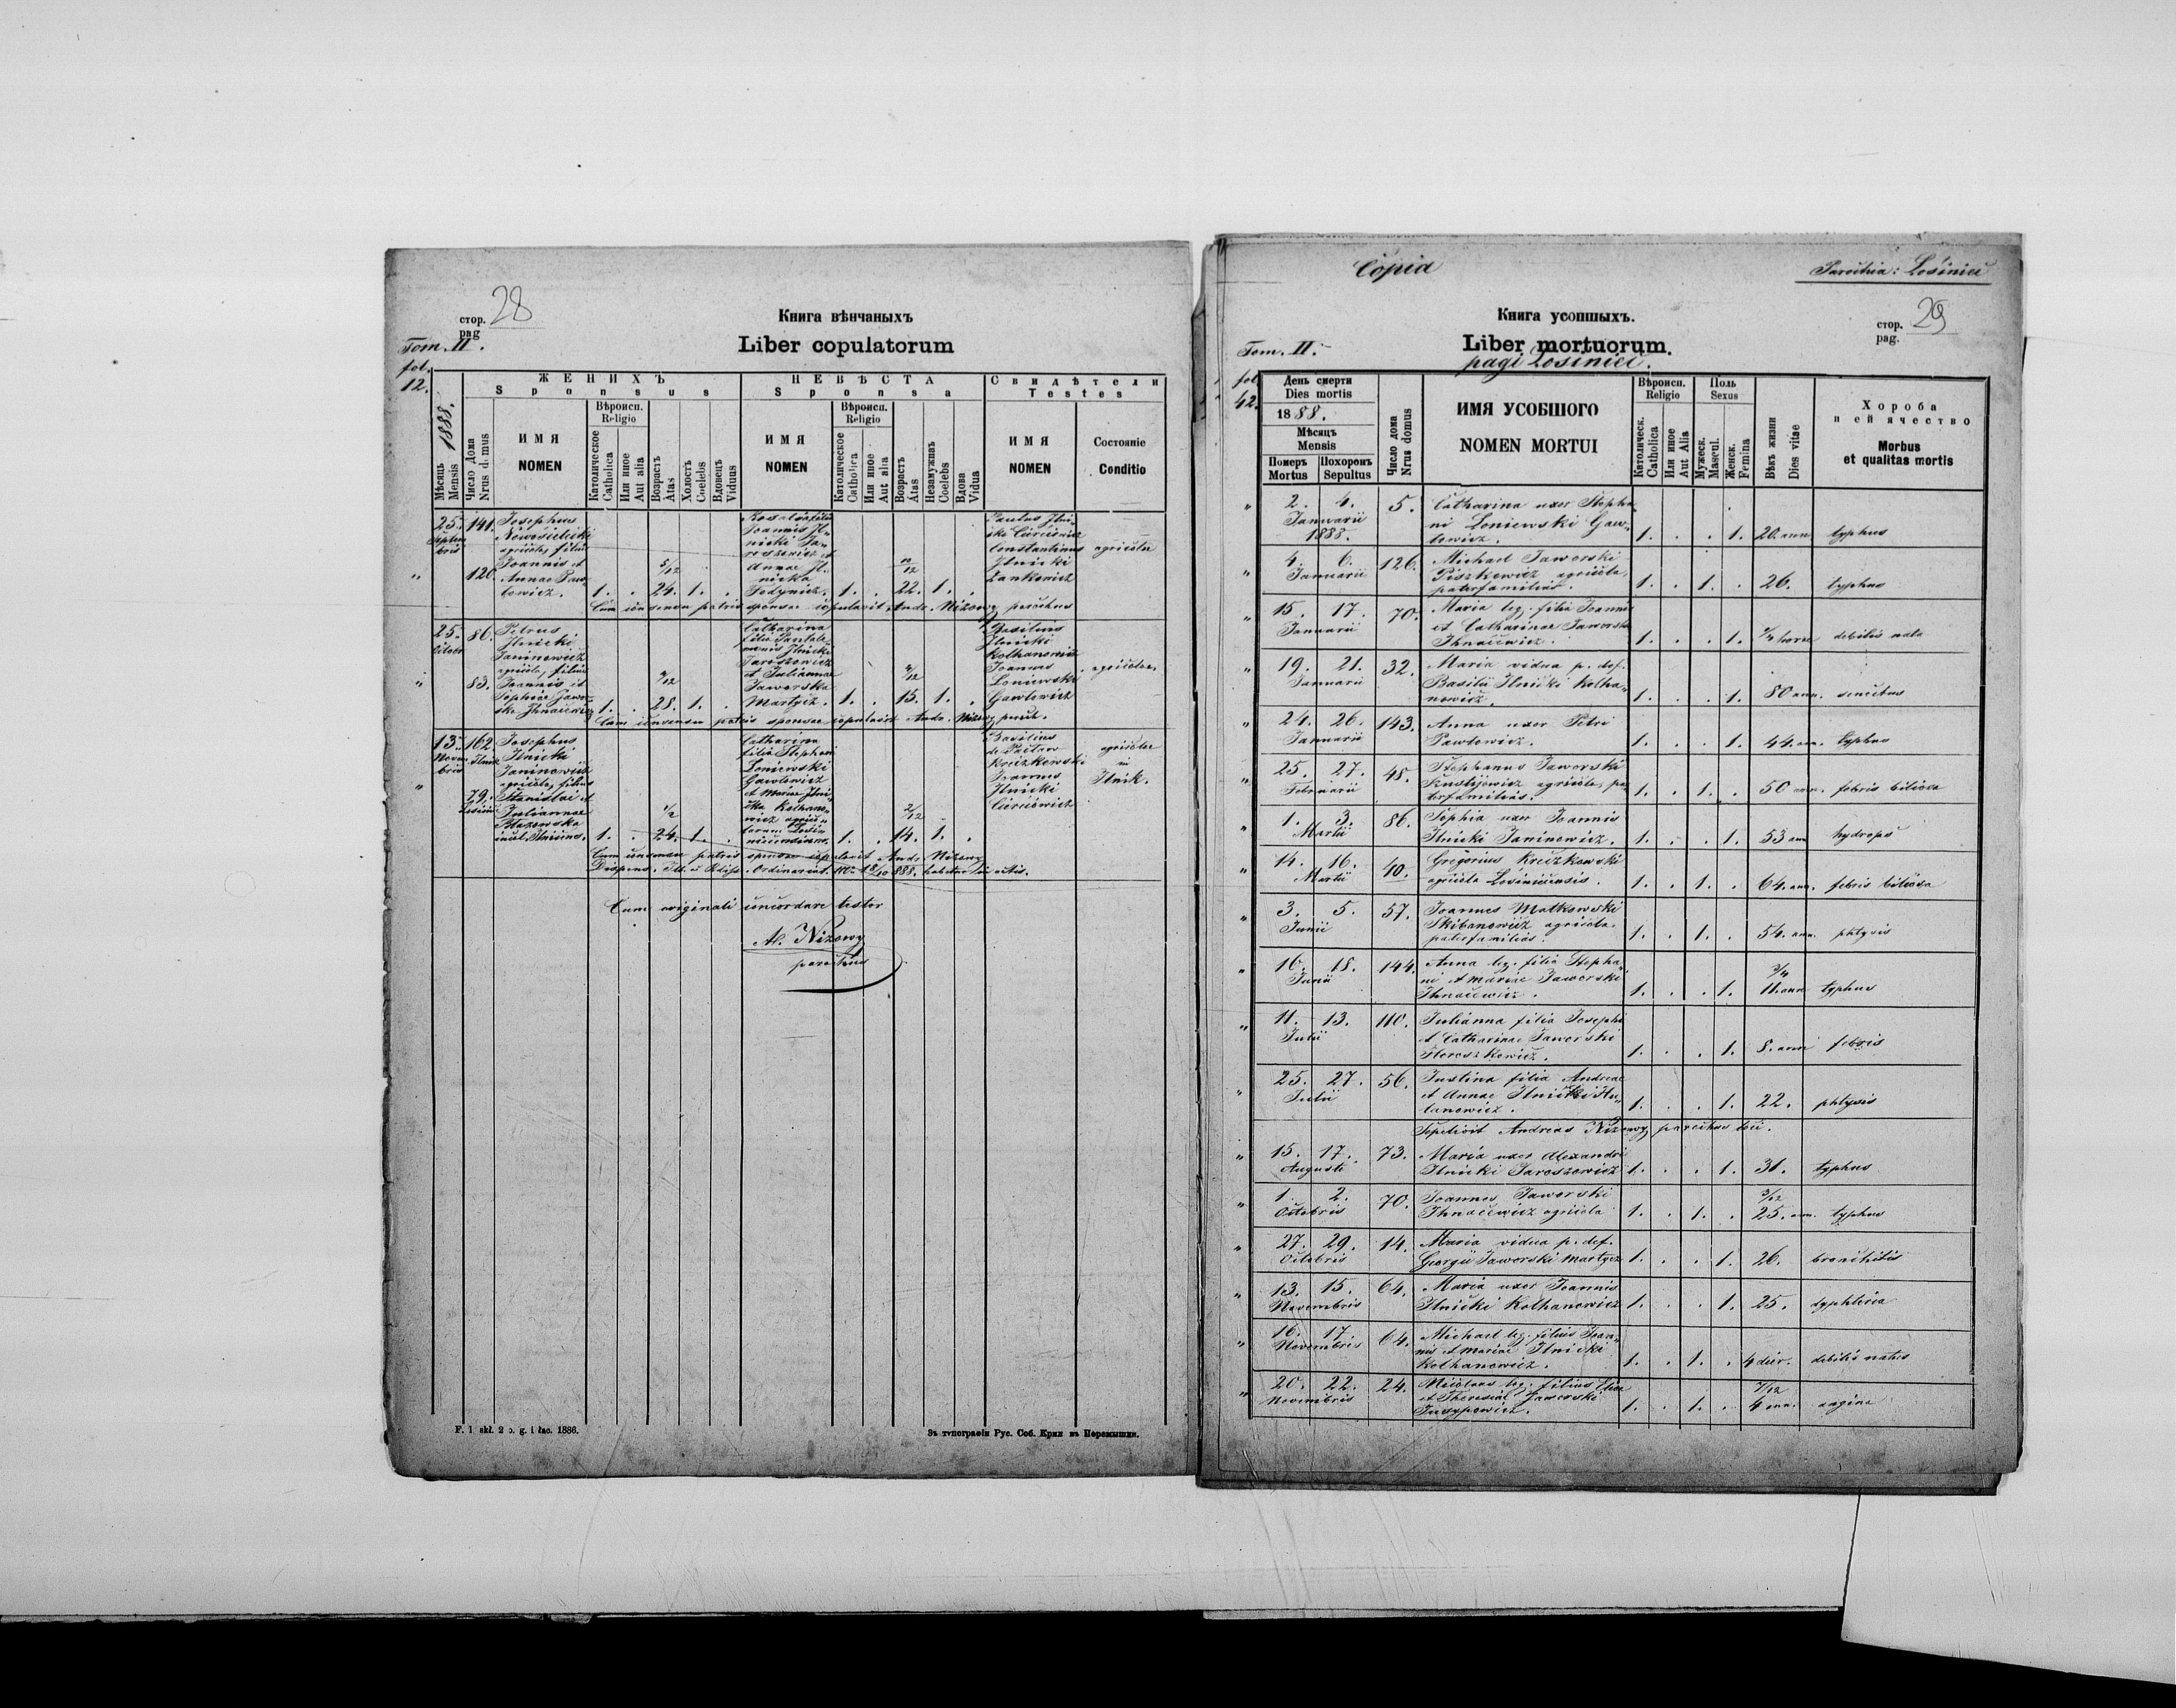 28
стор.
pag
Книга вѣнчаныхъ
Liber copulatorum
Tom. II.
fol.
12.
ЖЕНИХЪ
Sponsus
НЕВѢСТА
Sponsa
Свидѣтели
Testes
Мѣсяць
Mensis
1888.
Число Дома
Nrus domus
ИМЯ
NOMEN
Вѣроисп.
Religio
Католическое
Catholica
Или иное
Aut alia
Возрастъ
Ätas
Холостъ
Coelebs
Вдовецъ
Viduus
ИМЯ
NOMEN
Вѣроисп.
Religio
Католическое
Catholica
Или иное
Aut alia
Возрастъ
Ätas
Незамужнаъ
Coelebs
Вдова
Vidua
ИМЯ
NOMEN
Состояніе
Conditio
25. 141. Josephus
Septem
bris
agricola, filius
Joannis et
120. Annae Paw
lowicz. 1. . 24. 1. .
5/12
Rosalia filia
Joannis Il
nicki Ja
roszewicz et
Annae Il
nicka
Fedynicz. 1. . 22. 1. .
Paulus Ilni
cki
Constantinus
Ilnicki
Zankowicz
agricolae
Cum consensu patris sponsae copulavit Andr. Nizowy parochus
25. 86. Petrus
Octobr
Ilnicki
Janinowicz
agricola, filius
83. Joannis et
Sophiae Jawor
ska Ihnacewicz 1. . 28. 1. .
Catharina
filia Pantale
monis Ilnicki
Jaroszowicz
et Juliannae
Jaworska
Martycz. 1. . 15. 1. .
Basilius
Ilnicki
Kolhanowicz
Joannes
Loniewski
Gawlewicz
agricolae
Cum consensu patris sponsae copulavit Andr. Nizowy paroch.
13. 162. Josephus
Novem
bris
Ilnik
Ilnicki
Janinowicz
agricola, filius
79. Stanislai et
Juliannae
24. 1.
1/2
Catharina
filia Stephani
Loniewski
Gawlewicz
et Mariae Ilni
cka Kolhano
wicz
1. . 14. 1. .
2/12
Basilius
Kreczkowski
Joannes
Ilnicki
agricolae
in
Ilnik.
Cum consensu patris sponsae copulavit Andr. Nizowy
Cum originali concordare testor
A. Nizowy
parochus
F. 1 skł. 2 b. g. i łac. 1886.
Зъ типографіи Рус. Соб. Крил въ Перемышли.
Copia
Parochia: Łosiniec
29
стор.
pag.
Книга усопшыхъ.
Liber mortuorum.
pagi Łosiniec.
Tom. II.
fol.
42.
День смерти
Dies mortis
1888.
Мѣсяцъ
Mensis
Померъ
Mortus
Похоронъ
Sepultus
Число дома
Nrus domus
ИМЯ УСОБШОГО
NOMEN MORTUI
Вѣроисп.
Religio
Католическ.
Catholica
Или иное
Aut Alia
Поль
Sexus
Мужеск.
Mascul.
Женск.
Femina
Вѣкъ жизни
Dies vitae
Хороба
и ей ячество
Morbus
et qualitas mortis
" 2. 4. 5. Catharina uxor Stepha
Januarii
1888.
ni Loniewski Gaw
lewicz. 1. . . 1. 20. ann typhus
" 4. 6. 126. Michael Jaworski
Januarii
Piszkewicz agricola,
paterfamilias. 1. . 1. . 26. typhus
" 15. 17. 70. Maria leg. filia Joannis
Januarii
et Catharinae Jaworski
Ihnacewicz. 1. . . 1. 3/4 horae debilis nata
" 19. 21. 32. Maria vidua p. def.
Januarii
Basilii Ilnicki Kolha
nowicz. 1. . . 1. 80 ann. senectus
" 24. 26. 143. Anna uxor Petri
Januarii
Pawlewicz. 1. . . 1. 44. ann. typhus
" 25. 27. 48. Stephanus Jaworski
Februarii
agricola, pa
terfamilias. 1. . 1. . 50 ann. febris biliosa
" 1. 3. 86. Sophia uxor Joannis
Martii
Ilnicki Janinowicz. 1. . . 1. 53 ann hydrops
" 14. 16. 40. Gregorius Kreczkowski
Martii
agricola Losiniecensis. 1. . 1. . 64. ann. febris biliosa
" 3. 5. 57. Joannes Matkowski
Junii
Skibanowicz agricola,
paterfamilias. 1. . 1. . 54. ann. phtysis
" 16. 18. 144. Anna leg. filia Stepha
Junii
ni et Mariae Jaworski
Ihnacewicz. 1. . . 1. 3/4 11. ann typhus
" 11. 13. 110. Julianna filia Josephi
Julii
et Catharinae Jaworski
Horoszkewicz. 1. . . 1. 8. ann febris
" 25. 27. 56. Justina filia Andreae
Julii
et Annae Ilnicki Hu
lanowicz. 1. . . 1. 22. phtysis
Sepelivit Andreas Nizowy parochus loci.
" 15. 17. 73. Maria uxor Alexandri
Augusti
Ilnicki Jaroszowicz 1. . . 1. 31. typhus
" 1. 2. 70. Joannes Jaworski
Octobris
Ihnacewicz agricola 1. . 1. . 3/12 25. ann. typhus
" 27. 29. 14. Maria vidua p. def.
Octobris
Georgii Jaworski Martycz 1. . . 1. 26. bronchitis
" 13. 15. 64. Maria uxor Joannis
Novembris
Ilnicki Kolhanowicz 1. . . 1. 25. dyphteria
" 16. 17. 64. Michael leg. filius Joan
Novembris
nis et Mariae Ilnicki
Kolhanowicz. 1. . 1. . 4 dier. debilis natus
" 20. 22. 24. Nicolaus leg. filius Eliae
Novembris
et Theresiae Jaworski
Jusypowicz. 1. . 1. . 7/12 4 ann. angina